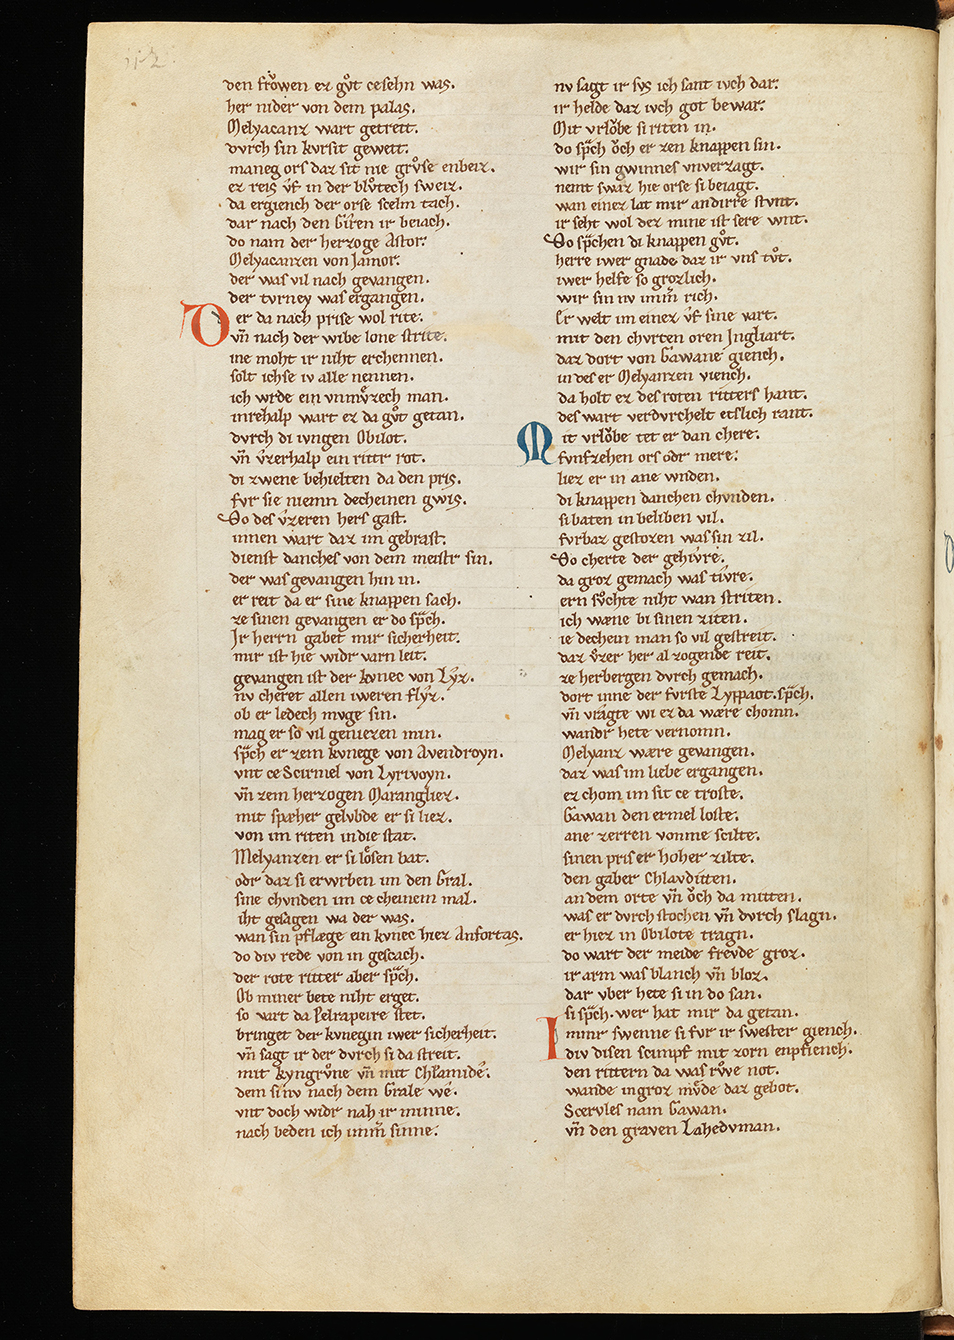 den frǒwen er gůt ce sehn was.
her nider von dem palas.
Melyacanz wart getrett.
dvrch sin kvrsit gewett.
maneg ors daz sit nie grůse enbeiz.
ez reis v̂f in der blůtech sweiz.
da ergiench der orse scelm tach.
dar nach den Giren ir beiach.
do nam der herzoge Astor.
Melyacanzen von Jamor.
der was vil nach gevangen.
der tvrney was ergangen.
Der da nach prise wol rite.
vn̄ nach der wibe lone strite.
ine moht ir niht erchennen.
solt ich se iv alle nennen.
ich wrde ein vnmv̊zech man.
inrehalp wart ez da gůt getan.
dvrch di ivngen Obilot.
vn̄ v̂zerhalp ein rittr rot.
di zwene behielten da den pris.
fvr sie niemn decheinen gwis.
So des v̂zeren hers gast.
innen wart daz im gebrast.
dienst danches von dem meistr sin.
der was gevangen hin in.
er reit da er sine knappen sach.
ze sinen gevangen er do sp̄ch.
Ir herrn gabet mir sicherheit.
mir ist hie widr varn leit.
gevangen ist der kvnec von Lŷz.
nv cheret allen iweren flŷz.
ob er ledech mvge sin.
mag er so vil geniezen min.
sp̄ch er zem kvnege von Avendroyn.
vnt ce Scirniel von Lyrivoyn.
vn̄ zem herzogen Marangliez.
mit spæher gelvbde er si liez.
von im riten in die stat.
Melyanzen er si lösen bat.
odr daz si erwrben im den Gral.
sine chvnden im ce cheinem mal.
iht gesagen wa der was.
wan sin pflæge ein kvnec hiez Anfortas.
do div rede von in gescach.
der rote ritter aber sp̄ch.
Ob miner bete niht erget.
so vart da Pelrapeire stet.
bringet der kvnegin iwer sicherheit.
vn̄ sagt ir der dvrch si da streit.
mit kyngrůne vn̄ mit Chlamide.
dem si nv nach dem Grale we.
vnt doch widr nah ir minne.
nach beden ich imm̄ sinne.
nv sagt ir svs ich sant ivch dar.
ir helde daz ivch got bewar.
Mit vrlǒbe si riten in.
do sp̄ch ǒch er zen knappen sin.
wir sin gwinnes vnverzagt.
nemt swaz hie orse si beiagt.
wan einez lat mir an dirre stvnt.
ir seht wol dez mine ist sere wnt.
So sp̄chen di knappen gůt.
herre iwer gnade daz ir vns tůt.
iwer helfe so grozlich.
wir sin nv imm̄ rich.
Er welt im einez v̂f sine vart.
mit den chvrten oren Jngliart.
daz dort von Gawane giench.
in des er Melyanzen viench.
da holt ez des roten ritters hant.
des wart verdvrchelt etslich rant.
Mit vrlǒbe tet er dan chere.
fvnfzehen ors odr mere.
liez er in ane wnden.
di knappen danchen chvnden.
si baten in beliben vil.
fvrbaz gestozen was sin zil.
So cherte der gehivre.
da groz gemach was tivre.
ern sv̊chte niht wan striten.
ich wæne bi sinen ziten.
ie dechein man so vil gestreit.
daz v̂zer her al zogende reit.
ze herbergen dvrch gemach.
dort inne der fvrste Lyppaot. sp̄ch.
vn̄ vragte wi ez da wære chomn.
wandr hete vernomn.
Melyanz wære gevangen.
daz was im liebe ergangen.
ez chom im sit ce troste.
Gawan den ermel loste.
ane zerren vonme scilte.
sinen pris er hoher zilte.
den gaber Chlavditten.
an dem orte vn̄ ǒch da mitten.
was er dvrch stochen vn̄ dvrch slagn.
er hiez in Obilote tragn.
do wart der meide frevde groz.
ir arm was blanch vn̄ bloz.
dar vber hete si in do san.
si sp̄ch. wer hat mir da getan.
Immr swenne si fvr ir swester giench.
div disen scimpf mit zorn enpfiench.
den rittern da was růwe not.
wande in groz mv̊de daz gebot.
Scervles nam Gawan.
vn̄ den graven Lahedvman.